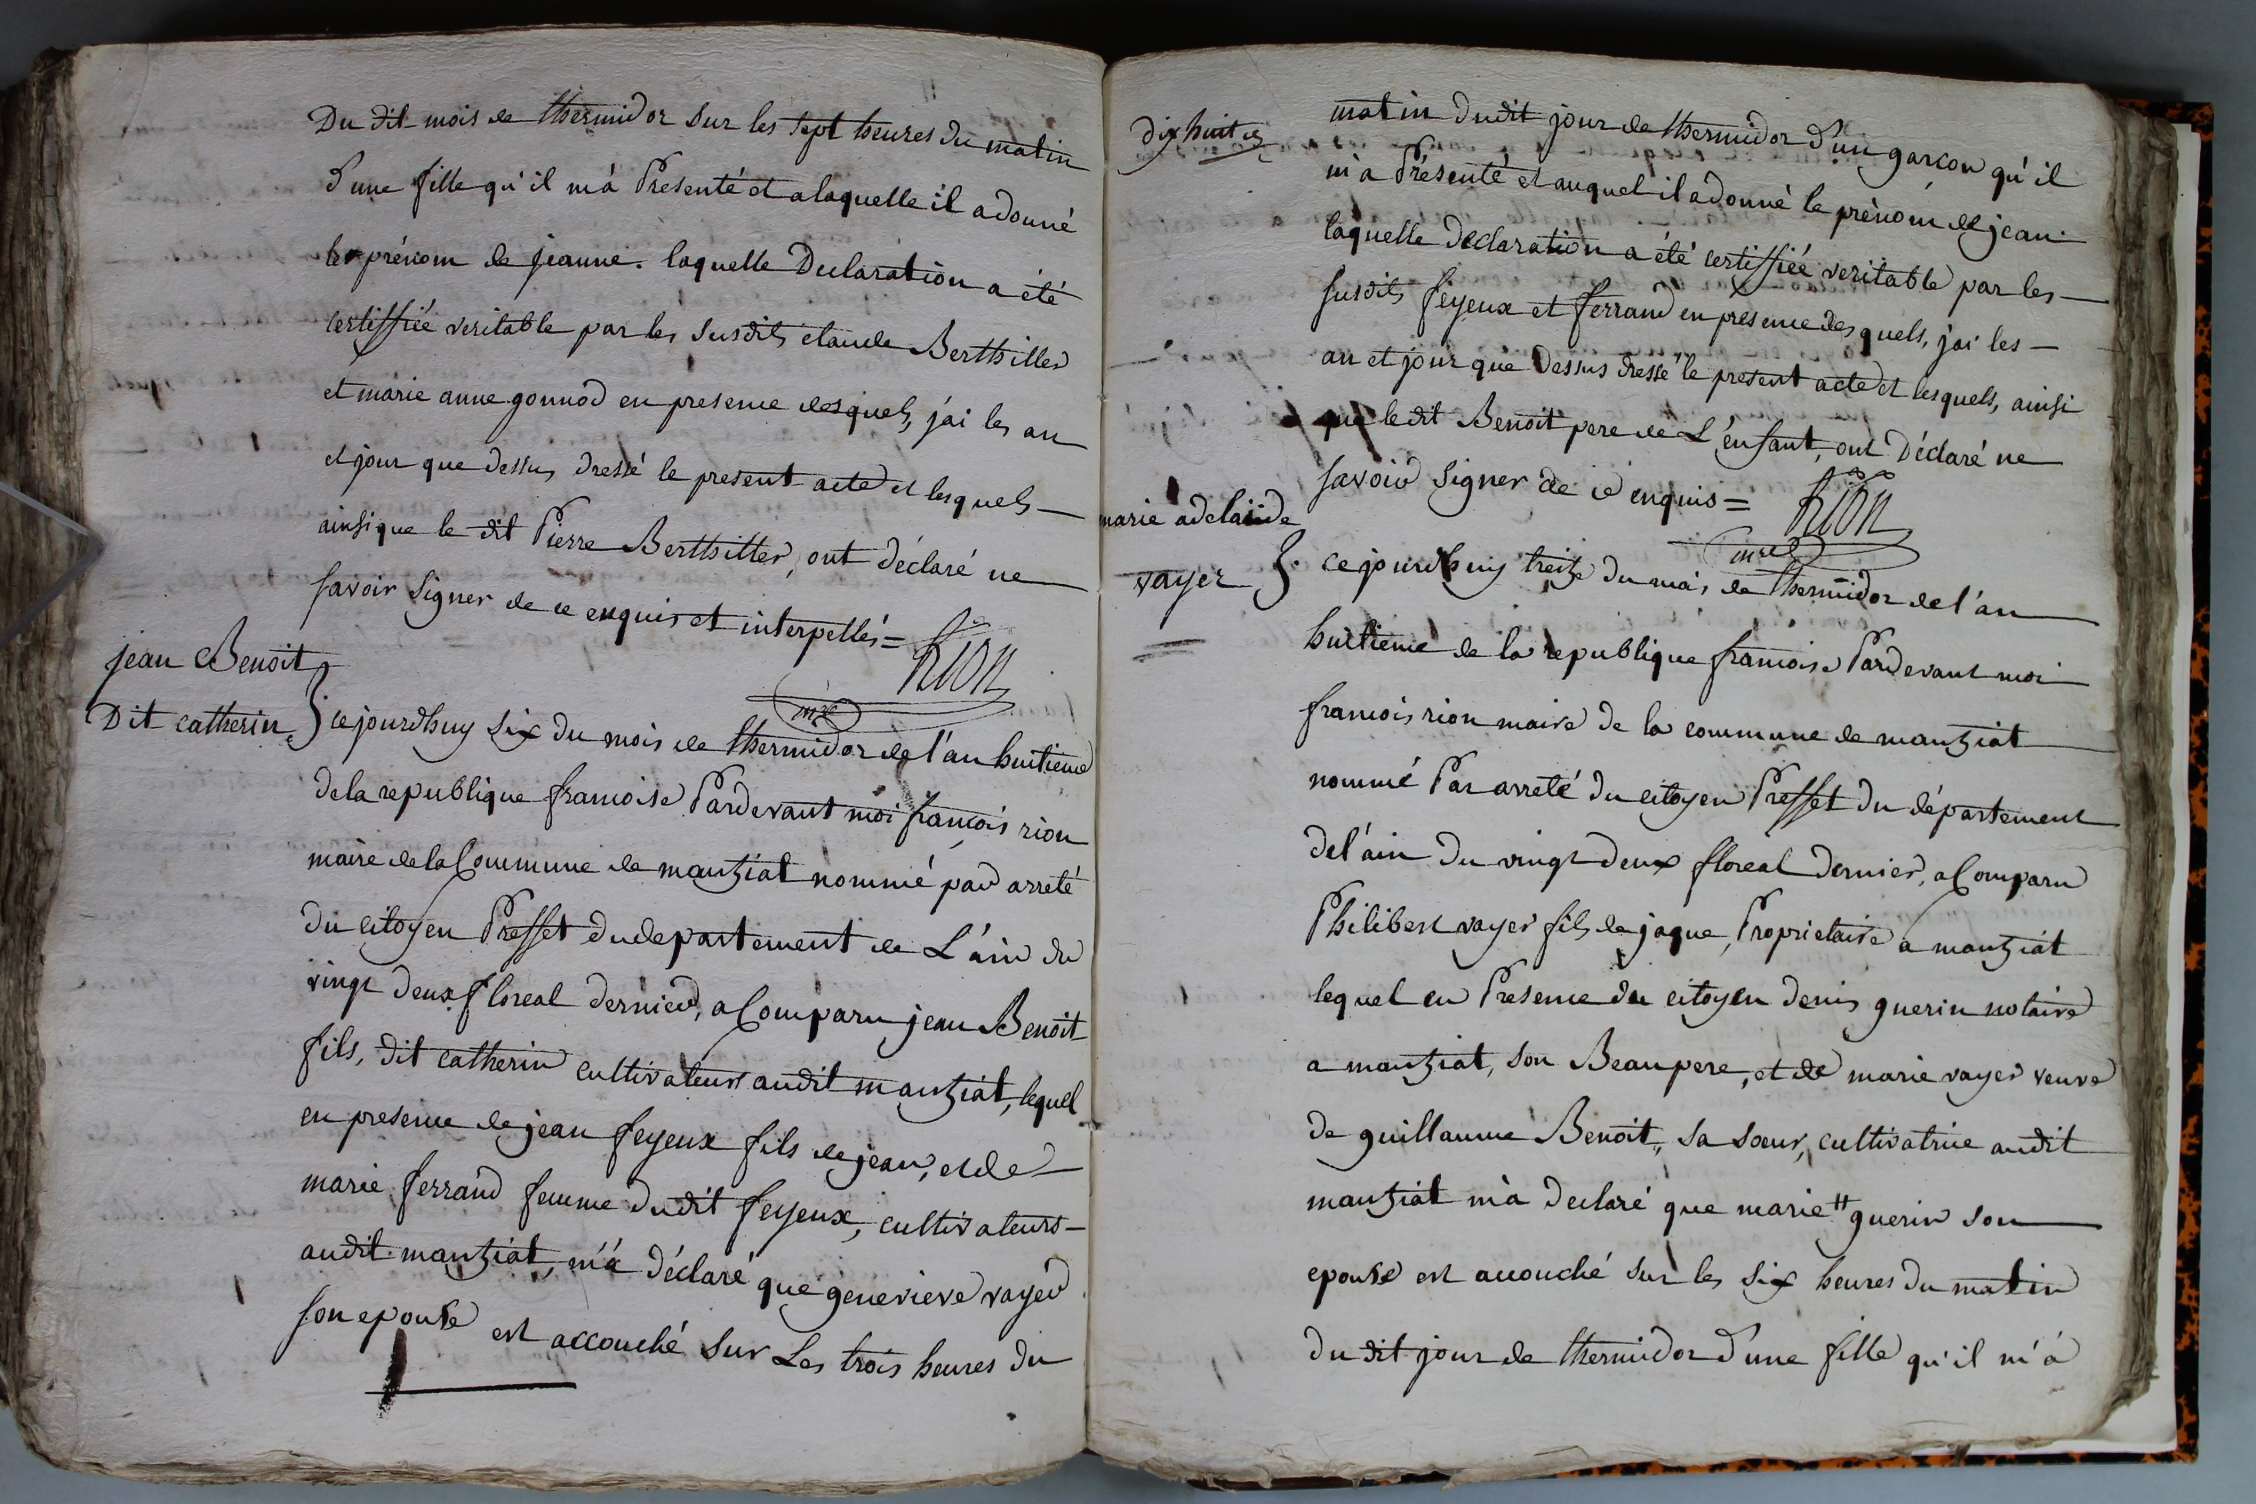 Du dit mois de thermidor sur les sept heures du matin
d'une fille qu'il m'a Présenté et a laquelle il a donné
le prénom de jeanne. laquelle Declaration a été
certiffiée veritable par les susdits claude Berthillier
et marie anne gonnod en presence desquels, j'ai les an
et jour que dessus dressé le present acte et lesquels
ainsi que le dit Pierre Berthillier, ont déclaré ne
savoir signer de ce enquis et interpellés =
Rion
mre
jean Benoit
Dit catherin
ce jourdhuy six du mois de thermidor de l'an huitieme
de la republique francoise Pardevant moi françois rion
maire de la Commune de mantziat nommé par arreté
du citoyen Preffet du departement de L'ain du
vingt deux floreal dernier, a Comparu jean Benoit
fils, dit catherin cultivateur audit mantziat, lequel
en presence de jean feyeux fils de jean, et de
marie ferrand femme dudit feyeux, cultivateurs
audit mantziat, m'a déclaré que genevieve vayer
son epouse est accouché sur Les trois heures du
dix huit
matin dudit jour de thermidor d'un garcon qu'il
m'a Présenté et auquel il a donné le prénom de jean
laquelle declaration a été certiffiée veritable par les
susdits feyeux et ferrand en presence desquels, j'ai les
an et jour que dessus dressé le present acte et lesquels, ainsi
que le dit Benoit pere de L'enfant, ont Déclaré ne
savoir signer de ce enquis =
Rion
mre
marie adelaide
vayer
ce jourdhuy treize du mois de thermidor de l'an
huitieme de la republique francoise Pardevant moi
francois rion maire de la commune de mantziat
nommé Par arreté du citoyen Preffet du département
de l'ain du vingt deux floreal dernier, a Comparu
Philibert vayer fils de jaque, Proprietaire a mantziat
lequel en Presence du citoyen denis guerin notaire
a mantziat, son Beaupere, et de marie vayer veuve
de guillaume Benoit, sa sœur, cultivatrice audit
mantziat m'a declaré que marie # guerin son
epouse est accouché sur les six heures du matin
du dit jour de thermidor d'une fille qu'il m'a